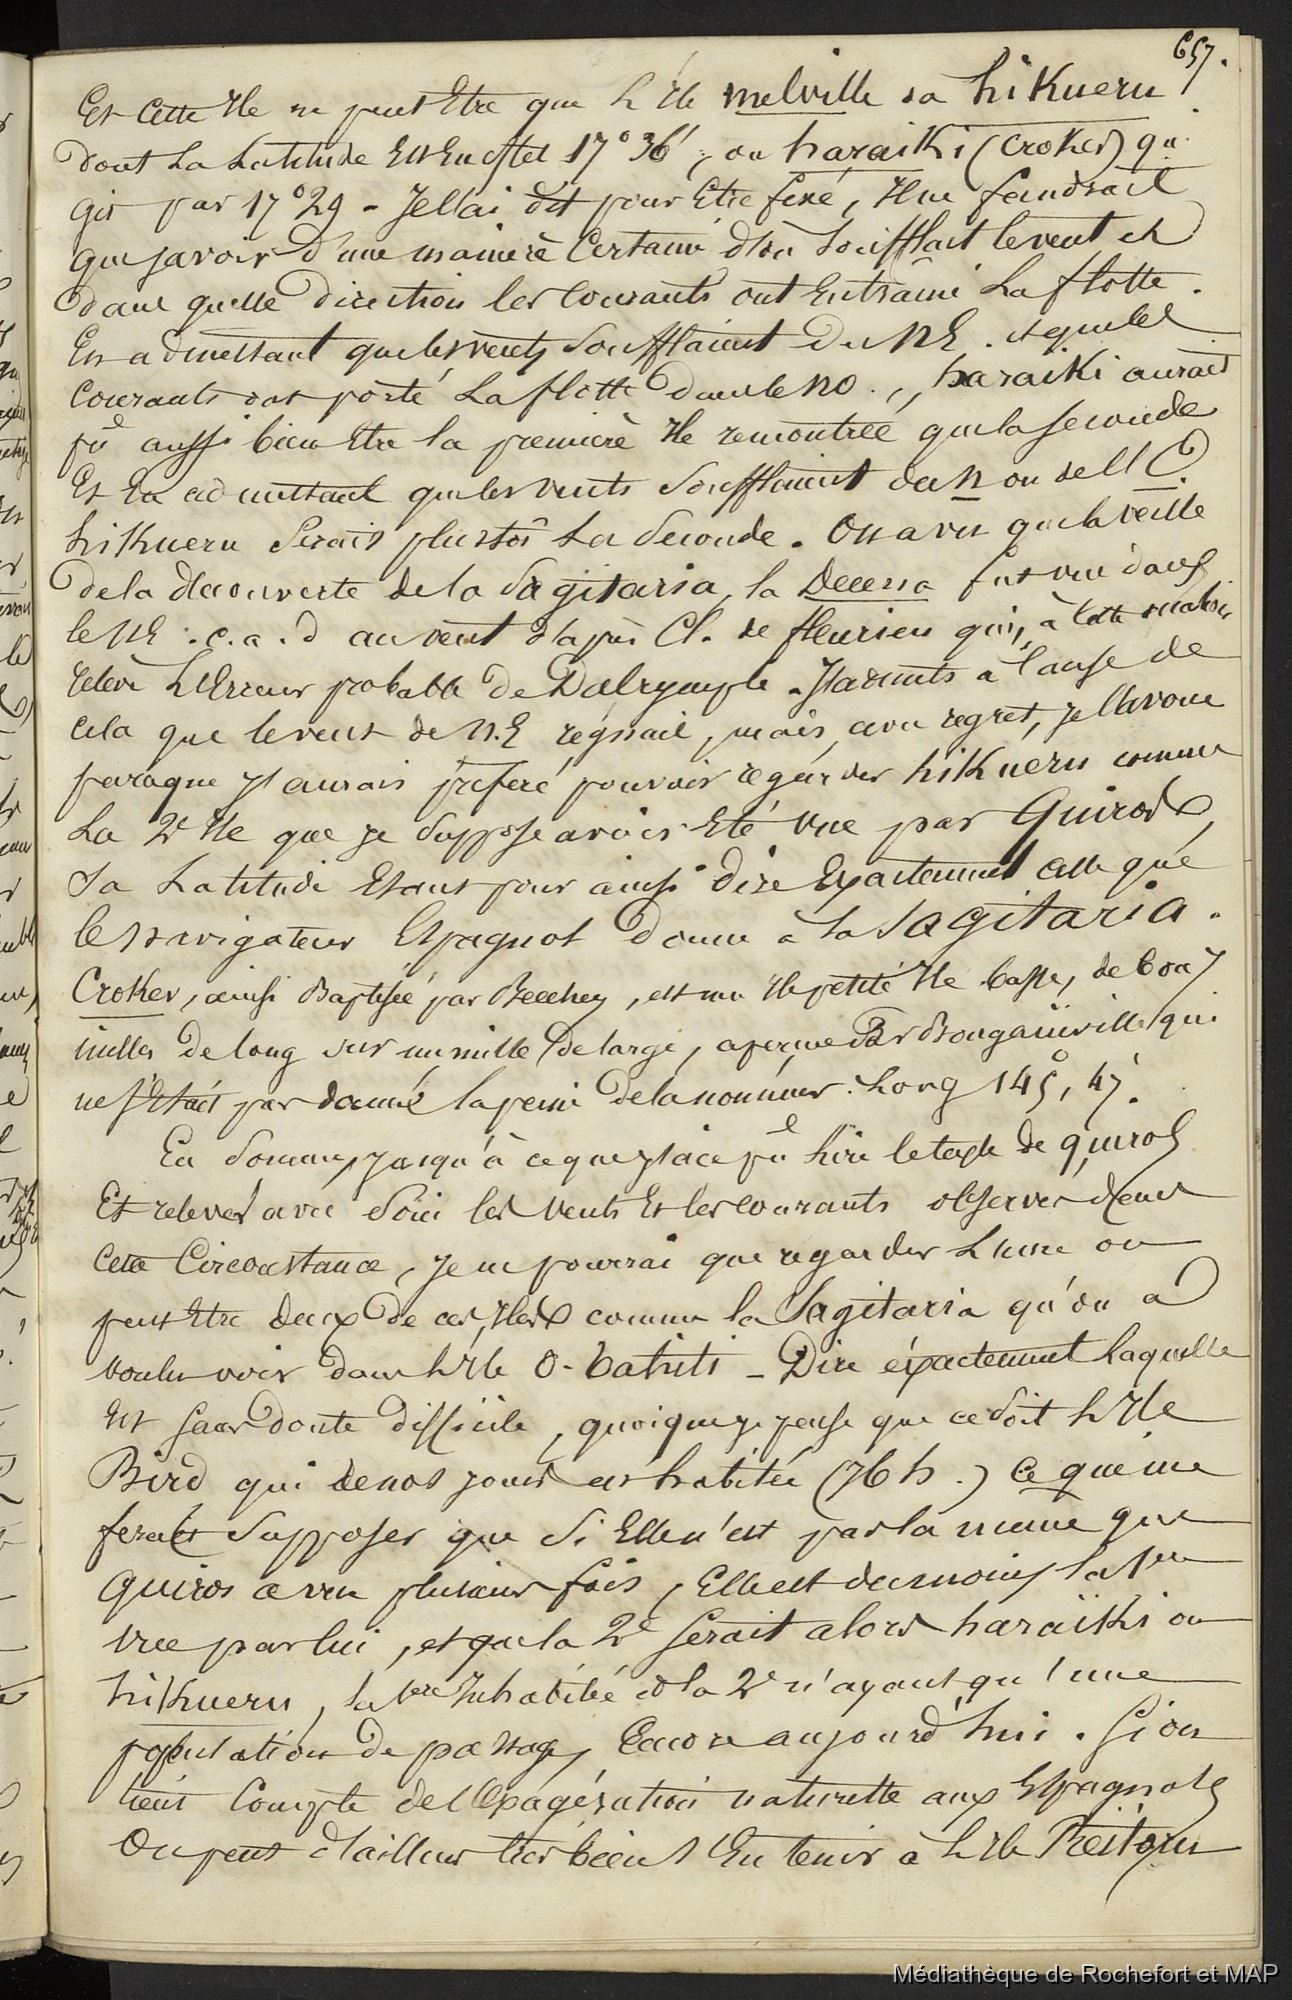 657.
Et cette Ile ne peut Etre que L'Ile melville ou hiKueru
dont La Latitude Est En effet 17° 36', ou haraiki (Croker) qui
git par 17° 29 - Je l'ai dit pour Etre fixé, Il ne faudrait
que savoir d'une manière Certaine d'où soufflait le vent et
dans quelle direction les courants ont Entrainé La flotte.
En admettant que les vents soufflaient du N E. et que les
Courants ont porté La flotte dans le NO., haraiki aurait
pû aussi bien Etre la première Ile rencontrée que la seconde
Et En admettant que les vents soufflaient du N ou de l'E.
hiKueru serait plustôt La seconde. On a vu que la veille
de la découverte de la Sagitaria, la Decena fut vue dans
le NE. c. a. d au vent d'après Cl. de fleurieu qui, à cette occasion
relève L'Erreur probable de Dalrymple. J'admets à cause de
cela que le vent de N.E régnait, mais, avec regret, je l'avoue
parceque J'aurais préféré pouvoir regarder hiKueru comme
La 2e Ile que je suppose avoir Eté vue par Quiros,
Sa Latitude Etant pour ainsi dire Exactement celle que
le navigateur Espagnol donne à la Sagitaria.
Croker, ainsi Baptisée par Beechey, est une petite Ile basse, de 6 ou 7
milles de long sur un mille de large, aperçue Par Bougainville qui
ne s'était pas donné la peine de la nommer. Long 145, 47'.
En somme, jusqu'à ce que j'aie pû lire le texte de quiros
Et relever avec soin les vents Et les courants observés dans
cette Circonstance, je ne pourrai que regarder L'une ou
peut Etre deux de ces Iles comme la Sagitaria qu'on a
voulu voir dans L'Ile O-tahiti - Dire exactement Laquelle
Est sans doute difficile, quoique je pense que ce soit L'Ile
Bird qui de nos jours est habitée (76 h.) Ce qui me
ferait supposer que si Elle n'est pas la même que
Quiros a vue plusieurs fois, Elle est du moins la 1ere
vue par lui, et que la 2e serait alors haraïki ou
hiKueru, la 1ere Inhabitée et la 2e n'ayant qu'une
population de passage, Encore aujourd'hui. Si on
tient Compte de l'Exagération naturelle aux Espagnols
On peut d'ailleurs très bien s'En tenir à L'Ile Réïtoru
Médiathèque de Rochefort et MAP